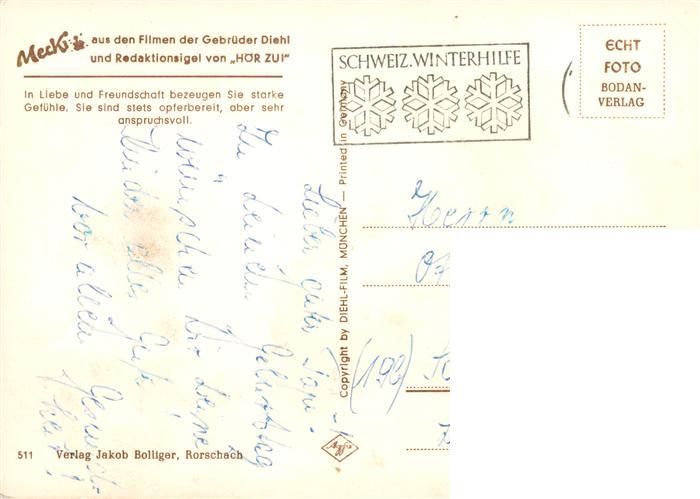 Mecki aus den Filmen der Gebrüder Diehl
und Redaktionsigel von „HÖR ZU!"
In Liebe und Freundschaft bezeugen Sie starke
Gefühle. Sie sind stets opferbereit, aber sehr
anspruchsvoll.
SCHWEIZ. WINTERHILFE
ECHT
FOTO
BODAN-
VERLAG
Copyright by DIEHL-FILM, MÜNCHEN — Printed in Germany
Lieber
Zu deinem Geburtstag
wünschen Dir deine
Kinder alles Gute
vor allem Gesund-
heit!
Herrn
(190)
Agfa
511 Verlag Jakob Bolliger, Rorschach